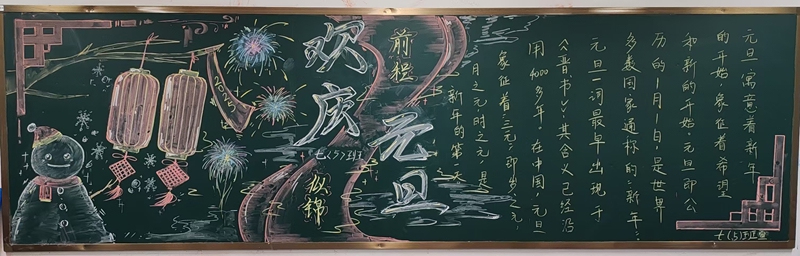 欢庆
元旦
前程
似锦
七(5)班
元旦,寓意着新年
的开始,象征着希望
和新的开始。元旦即公
历的1月1日,是世界
多数国家通称的“新年”。
元旦一词最早出现于
《晋书》,其含义已经沿
用4000多年。在中国,元旦
象征着“三元”,即岁之元,
月之元,时之元,是
新年的第一天
七(5)班